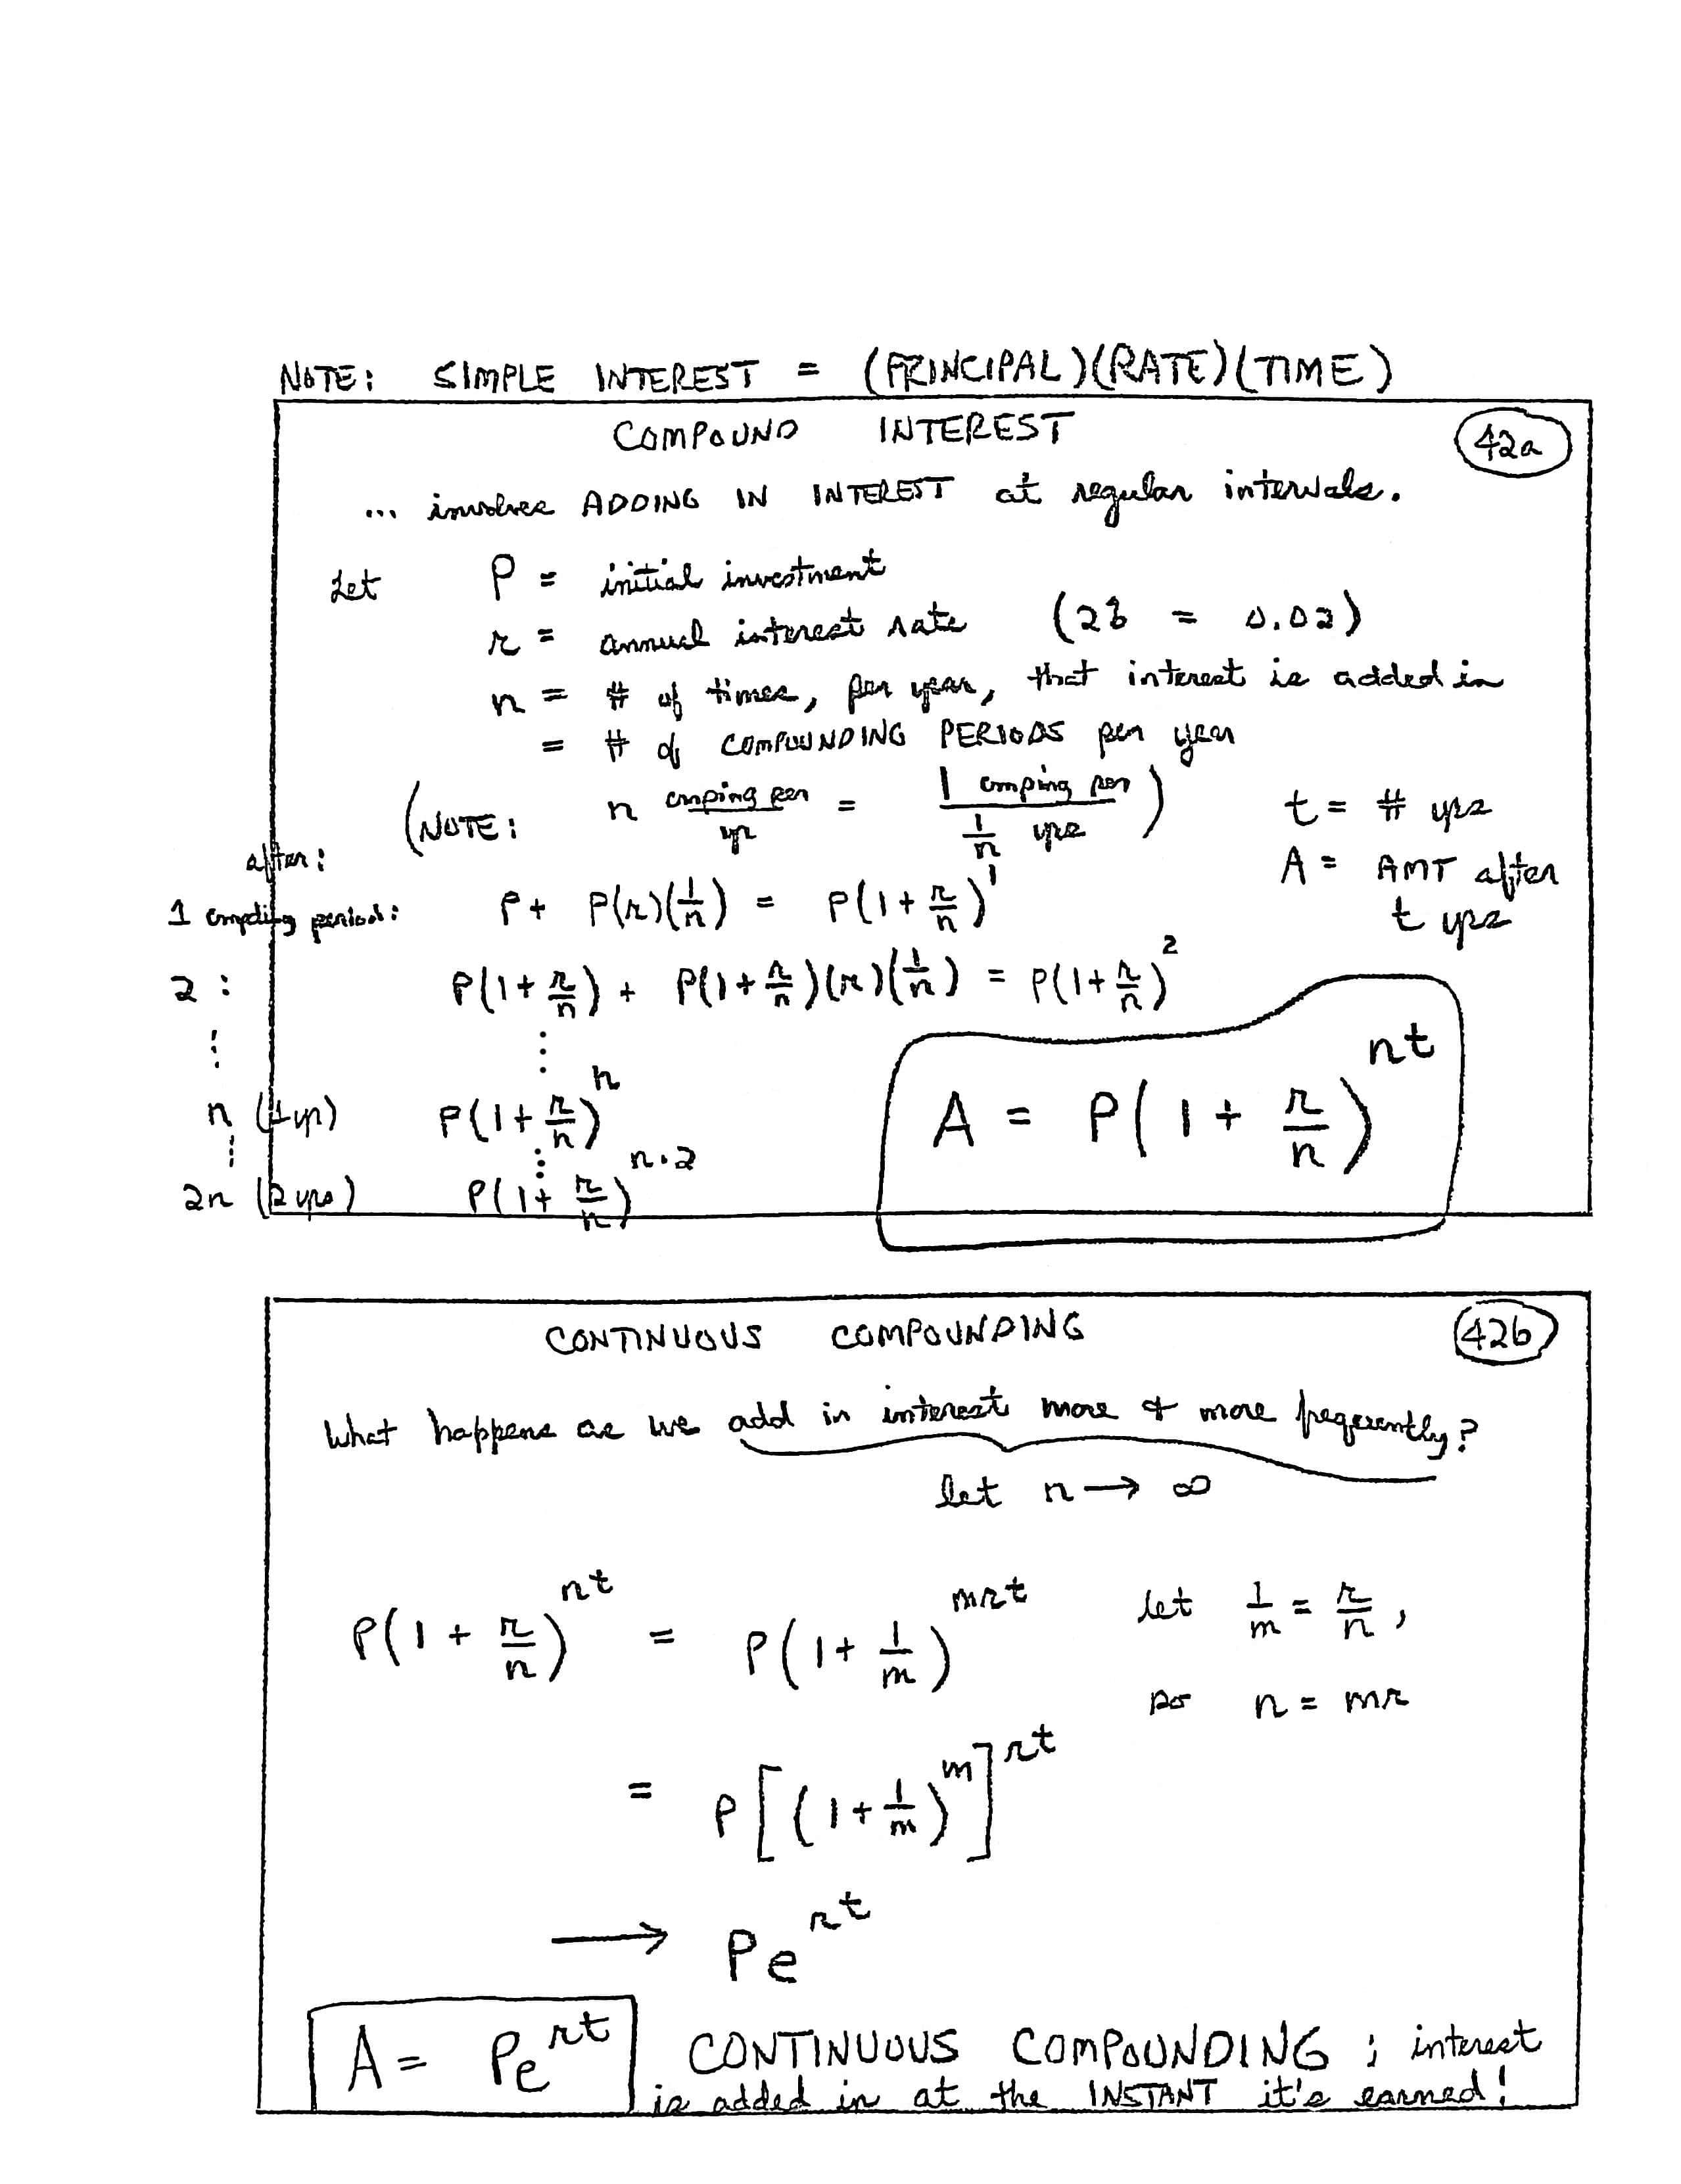 NOTE: SIMPLE INTEREST = (PRINCIPAL)(RATE)(TIME)
COMPOUND INTEREST
42a
... involves ADDING IN INTEREST at regular intervals.
Let P = initial investment
r = annual interest rate (2% = 0.02)
n = # of times, per year, that interest is added in
= # of COMPOUNDING PERIODS per year
(NOTE: n cmping per/yr = 1 cmping per/(1/n) yrs)
t = # yrs
A = AMT after
t yrs
after:
1 cmpding period: P + P(r)(1/n) = P(1 + r/n)^1
2: P(1 + r/n) + P(1 + r/n)(r)(1/n) = P(1 + r/n)^2
⋮ ⋮
n (1 yr) P(1 + r/n)^n
⋮ ⋮
2n (2 yrs) P(1 + r/n)^(n·2)
A = P(1 + r/n)^(nt)
CONTINUOUS COMPOUNDING
42b
What happens as we add in interest more & more frequently?
let n → ∞
P(1 + r/n)^(nt) = P(1 + 1/m)^(mrt) let 1/m = r/n,
so n = mr
= P[(1 + 1/m)^m]^(rt)
→ Pe^(rt)
A = Pe^(rt) CONTINUOUS COMPOUNDING; interest
is added in at the INSTANT it's earned!